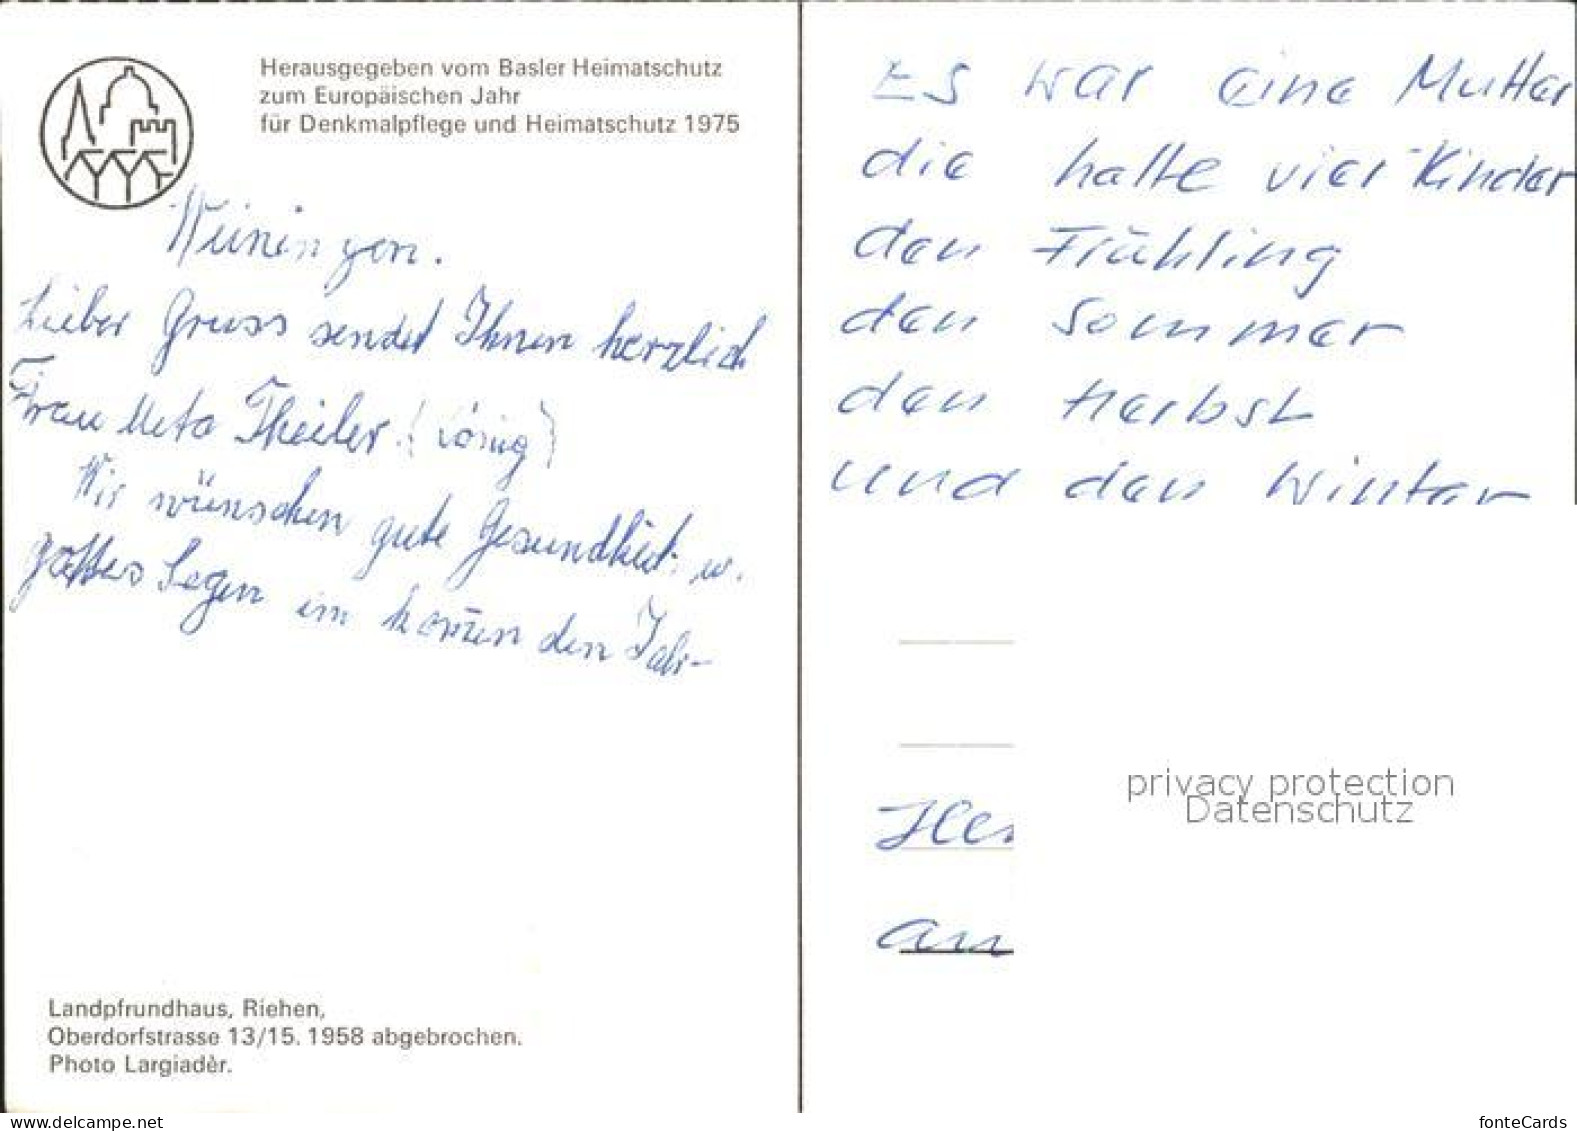 Herausgegeben vom Basler Heimatschutz
zum Europäischen Jahr
für Denkmalpflege und Heimatschutz 1975
Weiningen.
Lieber Gruss sendet Ihnen herzlich
Frau Meta Theiler.
Wir wünschen gute Gesundheit u.
gottes Segen im kom̅enden Jahr-
Landpfrundhaus, Riehen,
Oberdorfstrasse 13/15. 1958 abgebrochen.
Photo Largiadèr.
Es war eine Mutter
die hatte vier Kinder
den Frühling
den Sommer
den Herbst
und den Winter
privacy protection
Datenschutz
an
delcampe.net
fonteCards